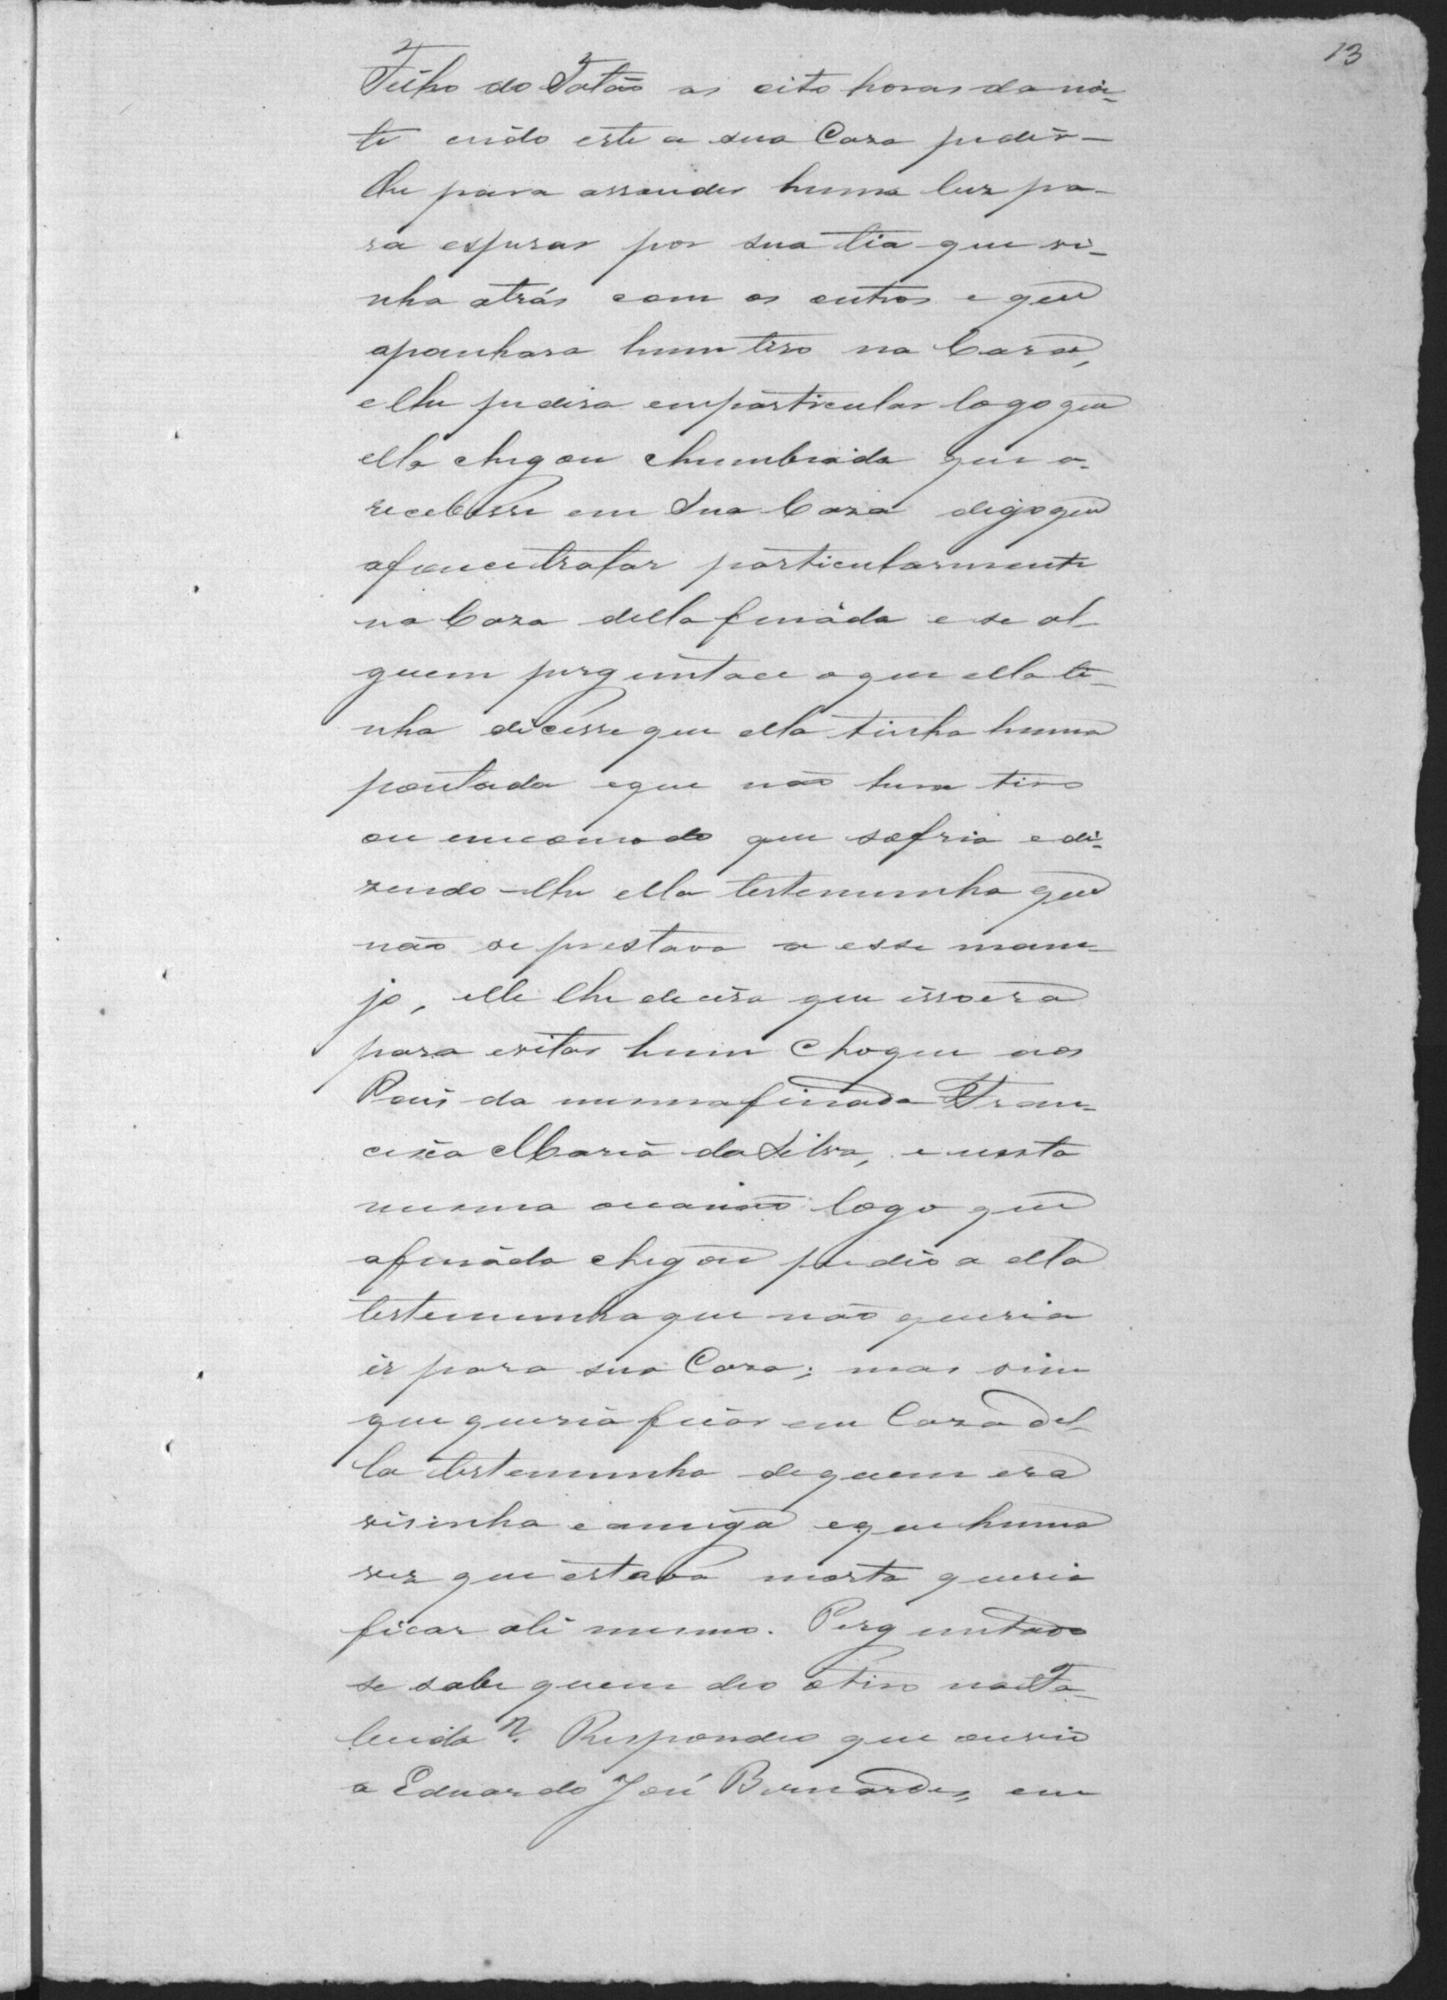 13
Filho do Fatão as oito horas da noi-
te indo este a sua Caza pedir-
lhe para assender huma luz pa-
ra esperar por sua tia que vi-
nha atrás com os outros e que
apanhara hum tiro na Cara,
e lhe pedira emparticular logo que
ella chegou chumbiada que a
recebesse em sua Caza digo que
afoucetratar particularmente
na Caza della fináda e se al-
guem perguntace o que ella ti-
nha dicésse que ella tinha huma
pontada e que não hum tiro
ou encomodo que sofria e di-
zendo-lhe ella testemunha que
não se prestava a esse mane-
jo, elle lhe dicéra que isso era
para evitar hum Choque aos
Pais da mesma finada Fran-
cisca Maria da Silva, e nesta
mesma ocazião logo que
afináda chegou pedio a ella
testemunha que não queria
ir para sua Caza; mas sim
que queria ficar em Caza del-
la testemunha de quem era
visinha e amiga e que huma
vez que estava morta queria
ficar ali mesmo. Perguntado
se sabe quem deo o tiro na Fa-
lecida? Respondeo que ouvio
a Eduardo José Bernardes, em